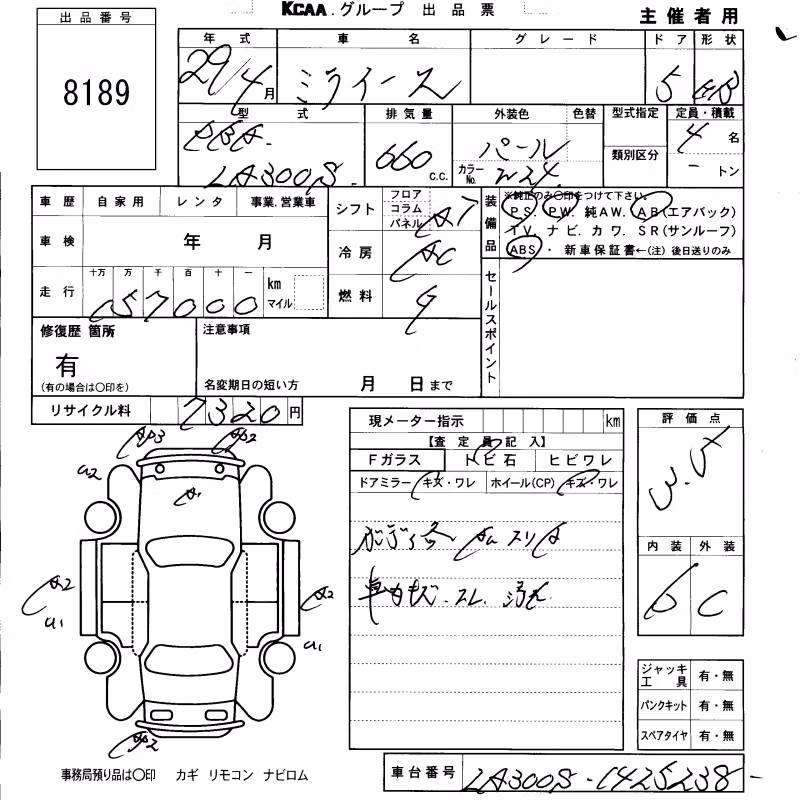 KCAA.グループ 出品票
主催者用
出品番号
8189
年式 車名 グレード ドア 形状
29/4月 ミライース 5 HB
型式 排気量 外装色 色替 型式指定 定員・積載
DBA- 660 c.c. パール 4 名
LA300S カラーNo. W24 類別区分 - トン
車歴 自家用 レンタ 事業.営業車
シフト フロア コラム パネル AT
装備品 ※純正のみ〇印をつけて下さい。
PS. PW. 純AW. AB(エアバック)
TV. ナビ. カワ. SR(サンルーフ)
ABS ・ 新車保証書←(注) 後日送りのみ
車検 年 月
冷房 AC
走行 十万 万 千 百 十 一 km マイル
057000
燃料 G
セールスポイント
修復歴 箇所
有
(有の場合は〇印を)
注意事項
名変期日の短い方 月 日まで
リサイクル料 7320 円
現メーター指示 km
【査定員記入】
Fガラス トビ石 ヒビワレ
ドアミラー キズ・ワレ ホイール(CP) キズ・ワレ
評価点
内装 外装
C
AP3 AP2
A2
A1
A2
U1
A2
U1
AP2
ジャッキ工具 有・無
パンクキット 有・無
スペアタイヤ 有・無
事務局預り品は〇印 カギ リモコン ナビロム
車台番号 LA300S-1425238-